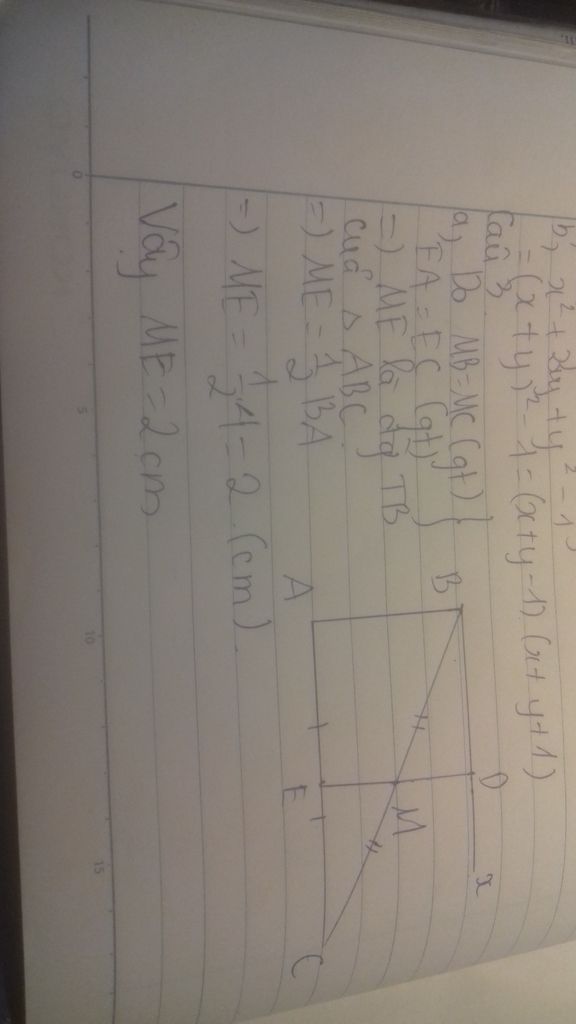 b, x² + 2xy + y² - 1
= (x + y)² - 1 = (x + y - 1). (x + y + 1)
Câu 3
a, Do MB = MC (gt) }
EA = EC (gt)
=) ME là đg TB
của △ ABC
=) ME = 1/2 BA
=) ME = 1/2 . 4 = 2 (cm)
Vậy ME = 2 cm
B
D
x
M
A
E
C
0
5
10
15